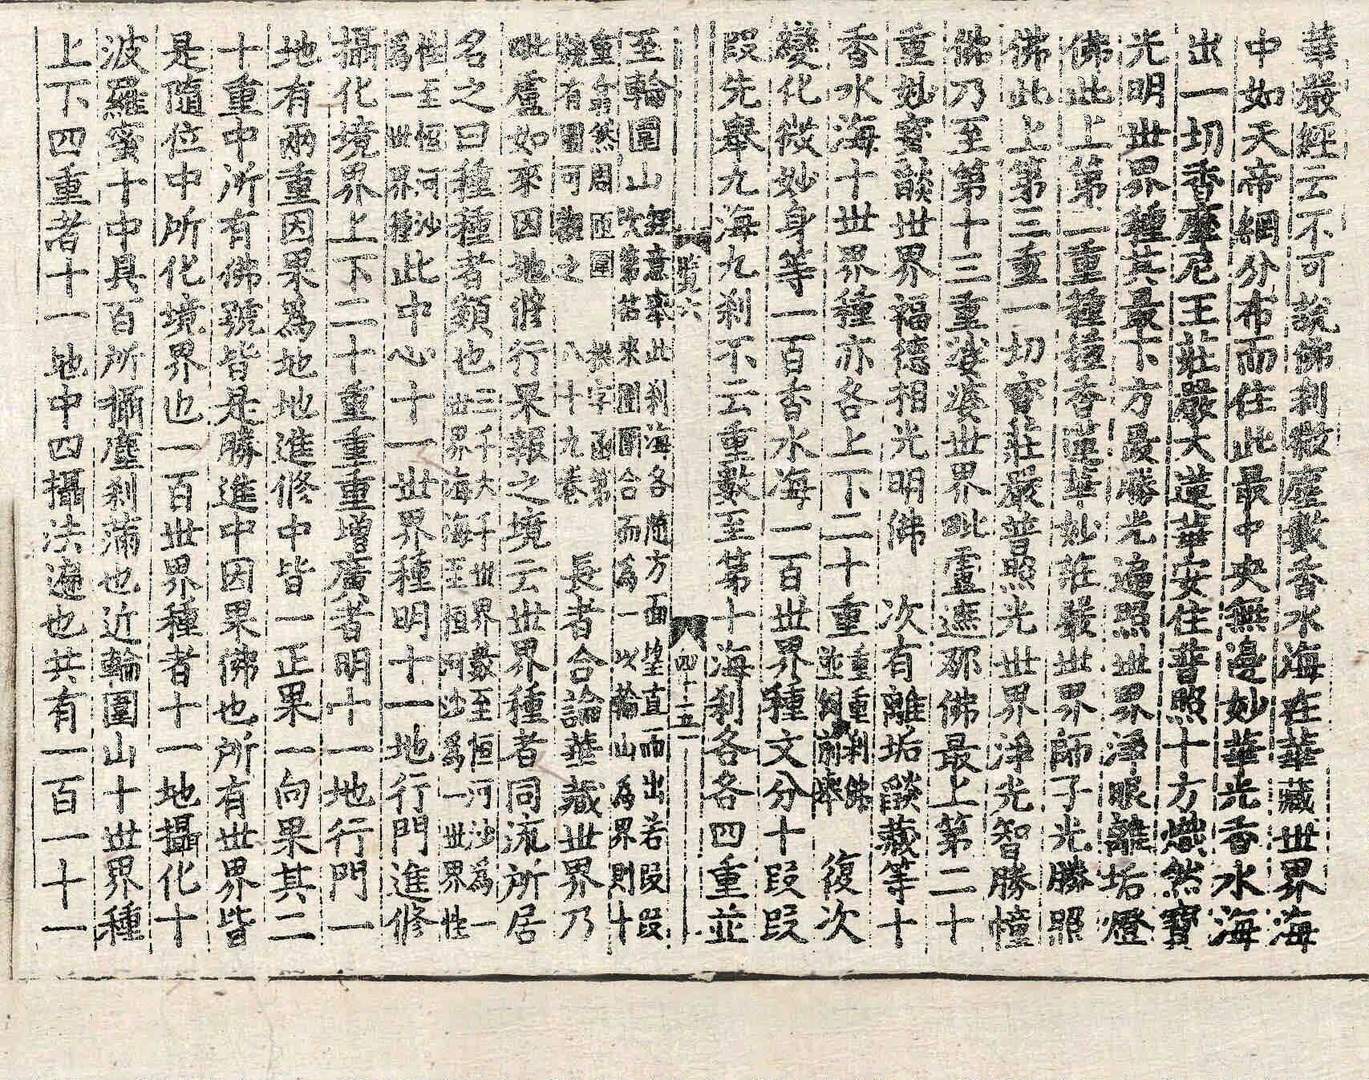 華嚴經云不可說佛刹微塵數香水海在華藏世界海
中如天帝網分布而住此最中央無邊妙華光香水海
出一切香摩尼王莊嚴大蓮華安住普照十方熾然寶
光明世界種其最下方最勝光遍照世界淨眼離垢燈
佛此上第二重種種香蓮華妙莊嚴世界師子光勝照
佛此上第三重一切寶莊嚴普照光世界淨光智勝幢
佛乃至第十三重娑婆世界毗盧遮那佛最上第二十
重妙寶燄世界福德相光明佛 次有離垢燄藏等十
香水海十世界種亦各上下二十重 重重刹佛並例前舉 復次
變化微妙身等一百香水海一百世界種文分十段段
段先舉九海九刹不云重數至第十海刹各各四重並
覽六 四十五
至輪圍山 經意舉此刹海各隨方面堂直而出若段段
攷第估來團圓合而為一以輪山為界則十
重翕然周匝圍
繞有圖可觀之 槃字函第八十九卷 長者合論華藏世界乃
毗盧如來因地修行果報之境云世界種者同流所居
名之曰種種者類也 三千大千世界數至恒河沙為一
世界海海至恒河沙為一世界性
性至恒河沙
為一世界種 此中心十一世界種明十一地行門進修
攝化境界上下二十重重重增廣者明十一地行門一
地有兩重因果為地地進修中皆一正果一向果其二
十重中所有佛號皆是勝進中因果佛也所有世界皆
是隨位中所化境界也一百世界種者十一地攝化十
波羅蜜十中具百所攝塵刹滿也近輪圍山十世界種
上下四重者十一地中四攝法遍也共有一百一十一